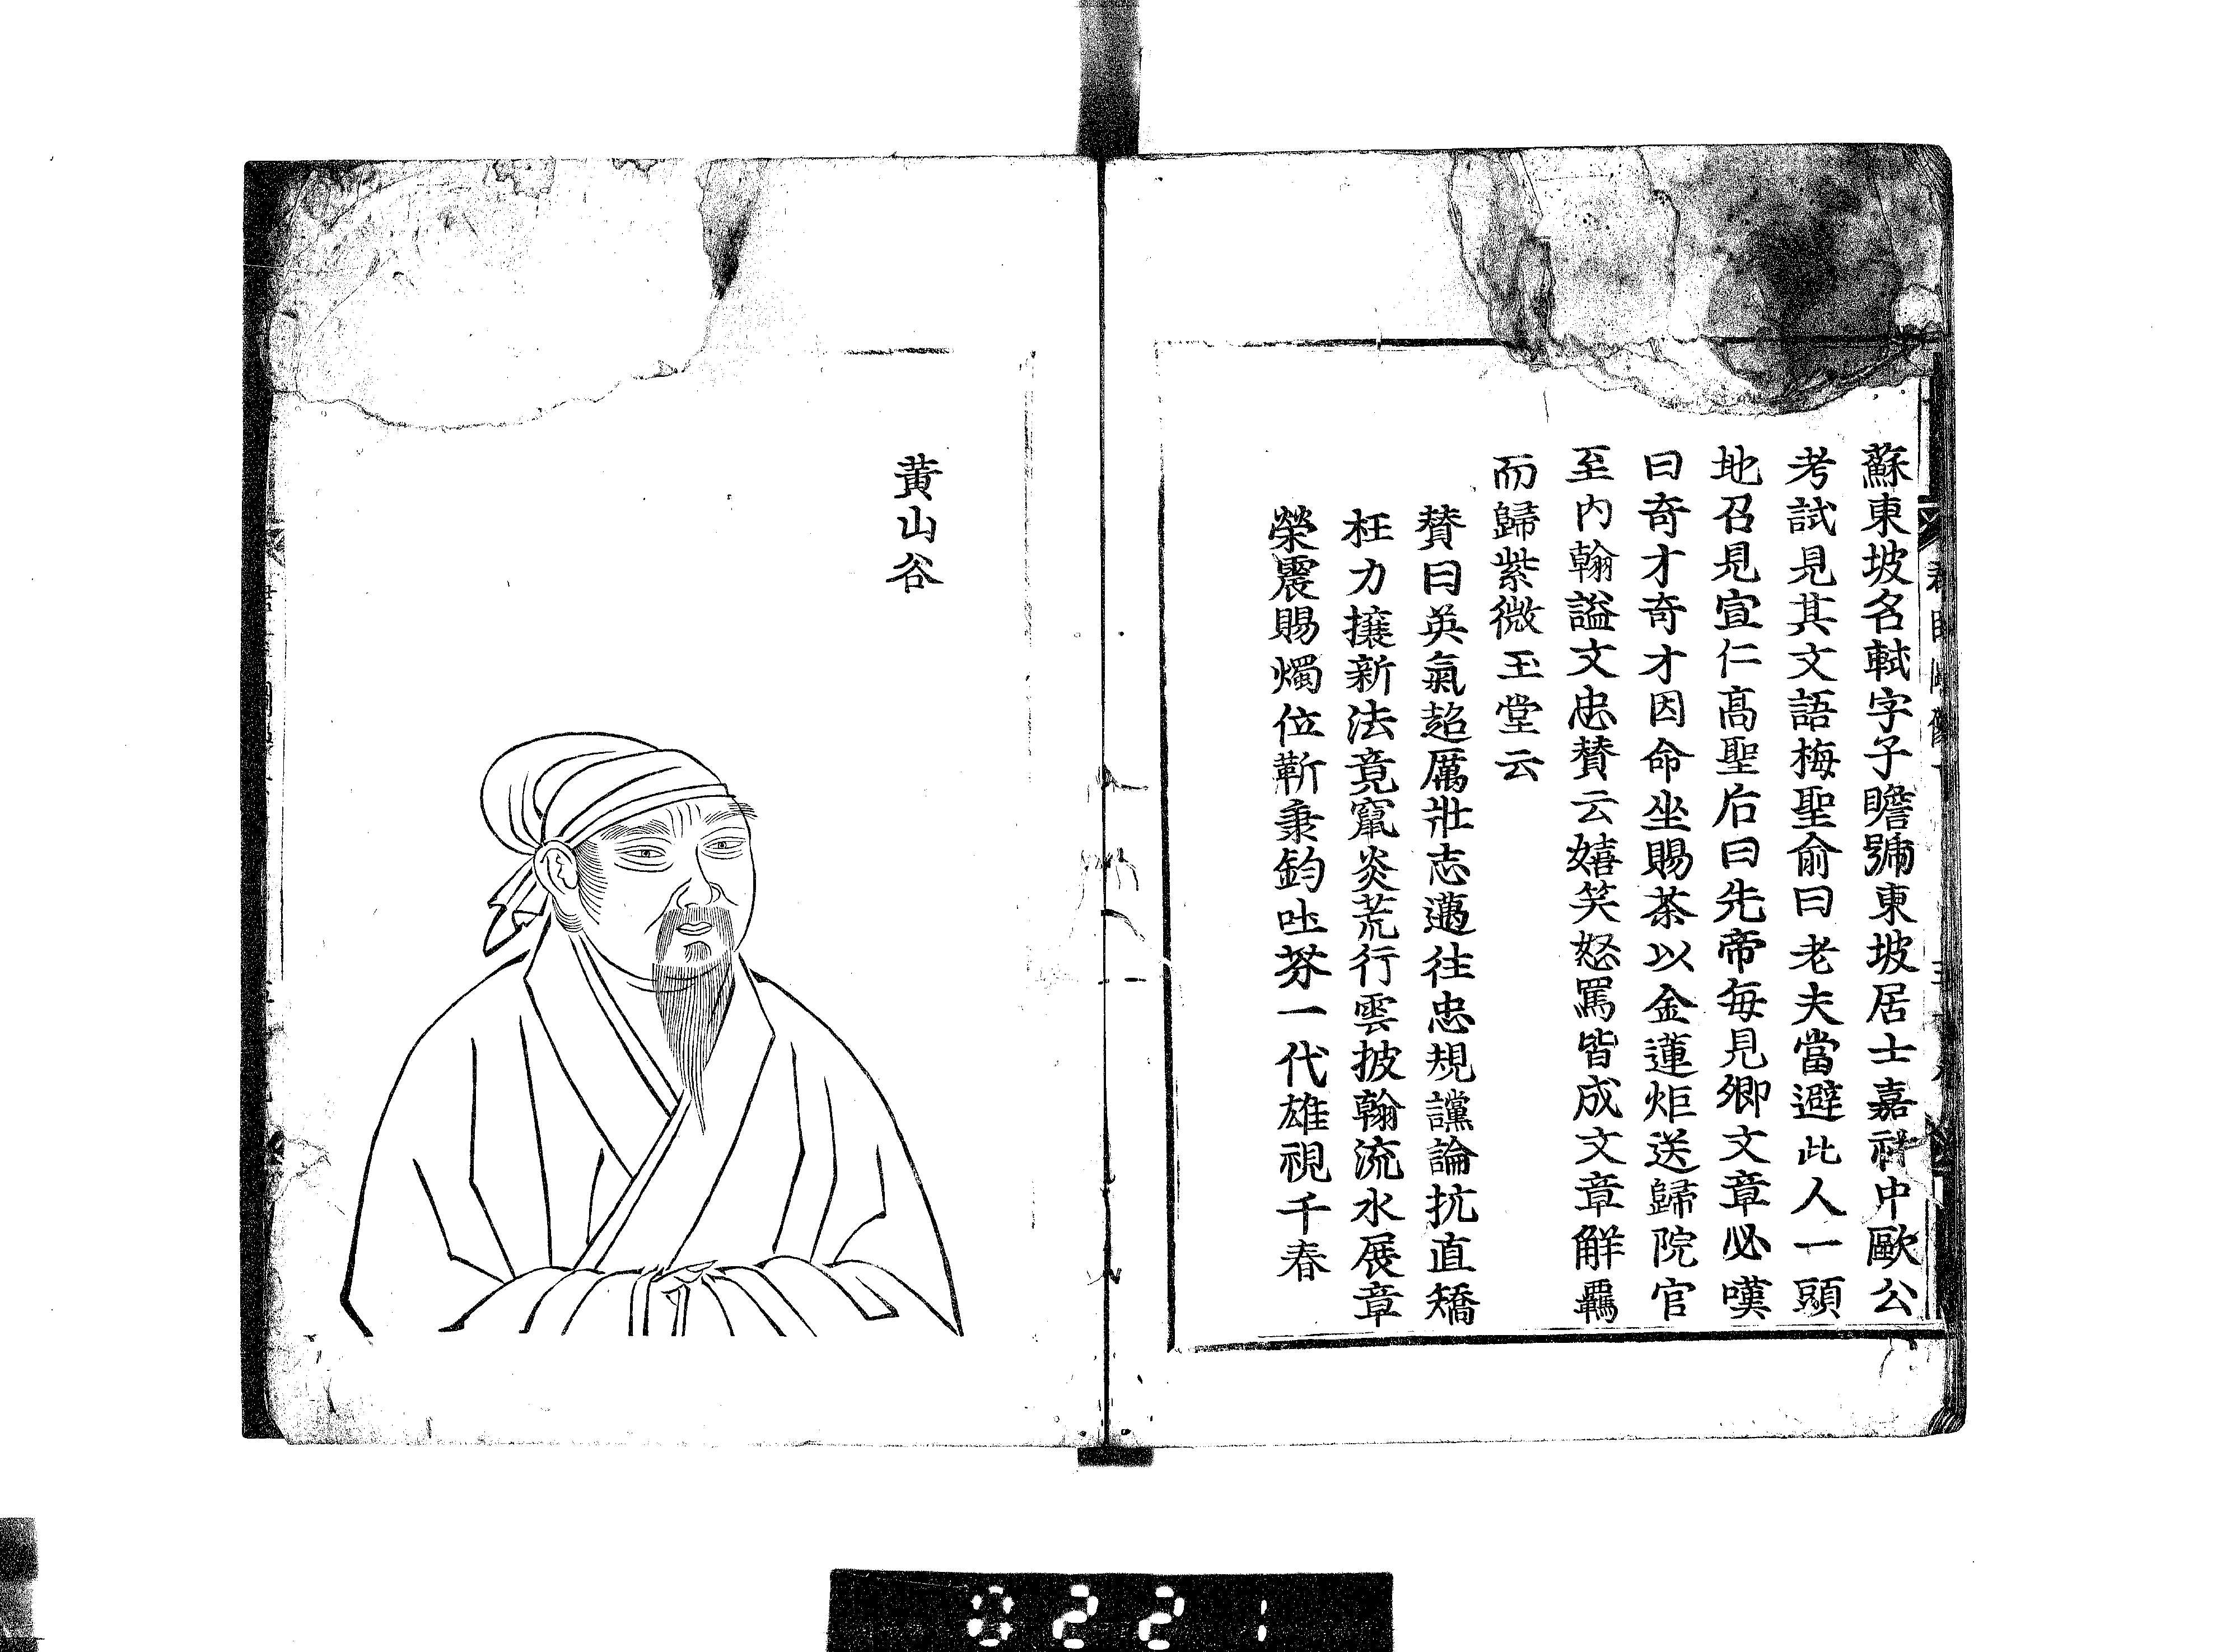 蘇東坡名軾字子瞻號東坡居士嘉祐中歐公
考試見其文語梅聖俞曰老夫當避此人一頭
地召見宣仁高聖后曰先帝每見卿文章必嘆
曰奇才奇才因命坐賜茶以金蓮炬送歸院官
至内翰謚文忠賛云嬉笑怒罵皆成文章觧羈
而歸紫微玉堂云
賛曰英氣超厲壯志邁往忠規讜論抗直矯
枉力攘新法竟竄炎荒行雲披翰流水展章
榮震賜燭位靳秉鈞吐芬一代雄視千春
黄山谷
0221